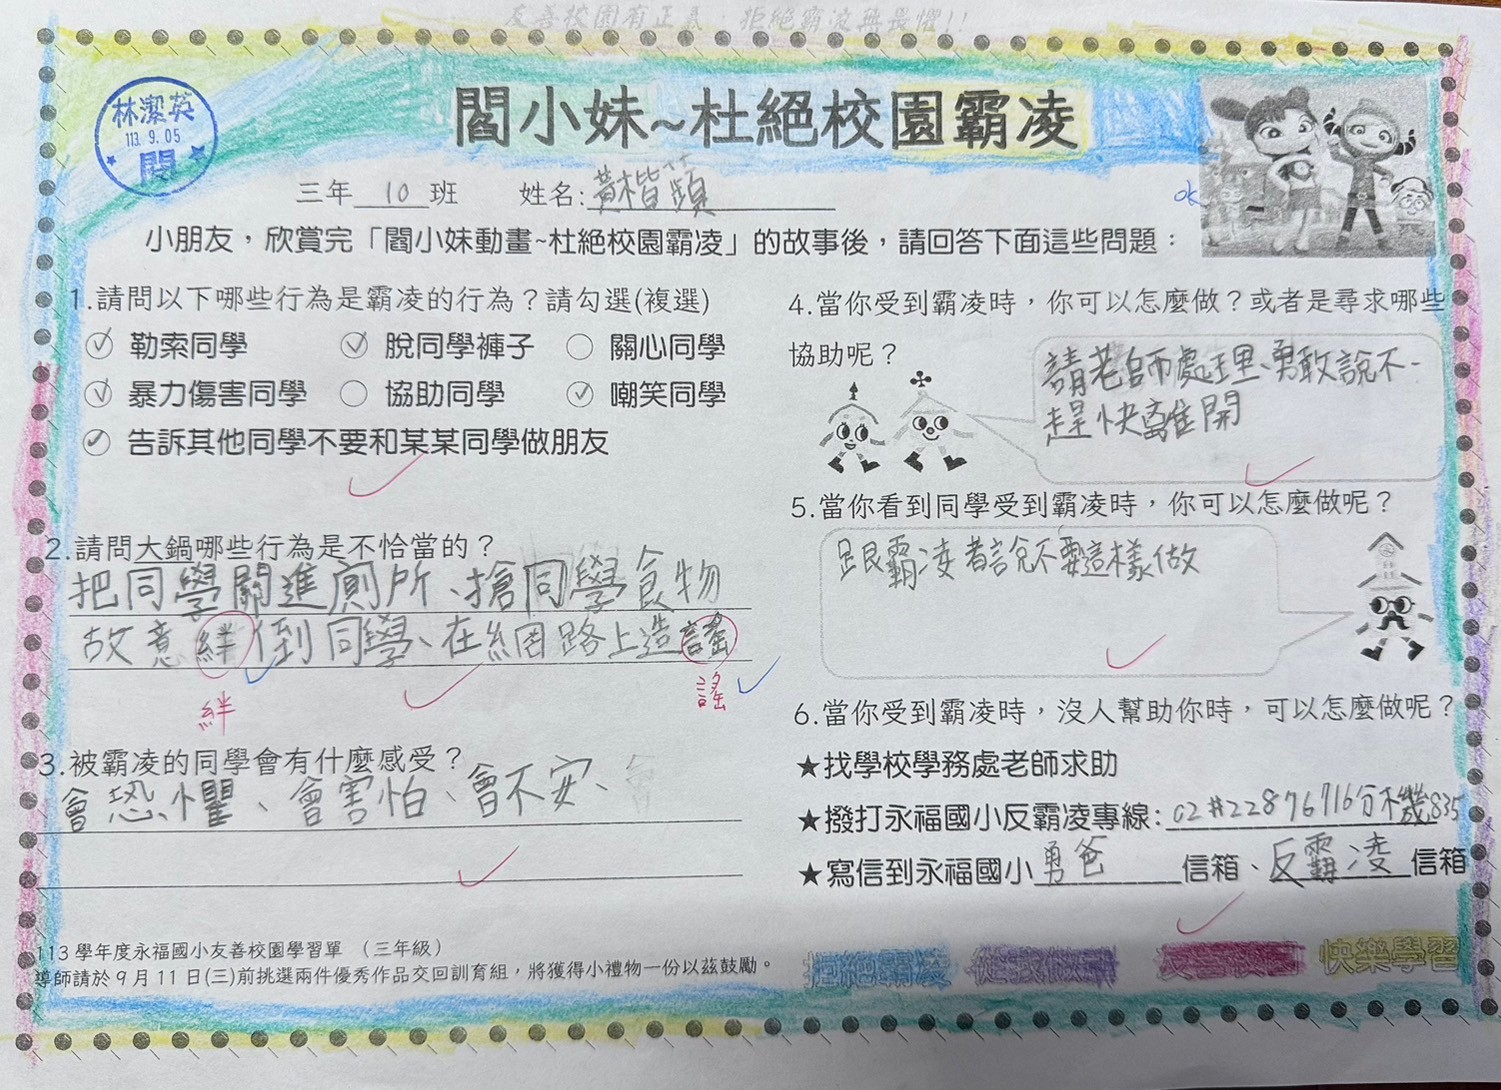 友善校園有正義，拒絕霸凌無畏懼!!
林潔英
113.9.05
閱
閻小妹~杜絕校園霸凌
三年 10 班 姓名:黃楷蘋
ok
小朋友，欣賞完「閻小妹動畫~杜絕校園霸凌」的故事後，請回答下面這些問題：
1.請問以下哪些行為是霸凌的行為？請勾選(複選)
✓ 勒索同學 ✓ 脫同學褲子 ○ 關心同學
✓ 暴力傷害同學 ○ 協助同學 ✓ 嘲笑同學
✓ 告訴其他同學不要和某某同學做朋友
2.請問大鍋哪些行為是不恰當的？
把同學關進廁所、搶同學食物
故意絆倒同學、在網路上造謠
絆 謠
3.被霸凌的同學會有什麼感受？
會恐懼、會害怕、會不安、會
4.當你受到霸凌時，你可以怎麼做？或者是尋求哪些
協助呢？
請老師處理、勇敢說不、
趕快離開
5.當你看到同學受到霸凌時，你可以怎麼做呢？
跟霸凌者說不要這樣做
6.當你受到霸凌時，沒人幫助你時，可以怎麼做呢？
★找學校學務處老師求助
★撥打永福國小反霸凌專線:02#22876716分機835
★寫信到永福國小勇爸信箱、反霸凌信箱
113 學年度永福國小友善校園學習單 （三年級）
導師請於 9 月 11 日(三)前挑選兩件優秀作品交回訓育組，將獲得小禮物一份以茲鼓勵。
拒絕霸凌 從我做起 友善校園 快樂學習